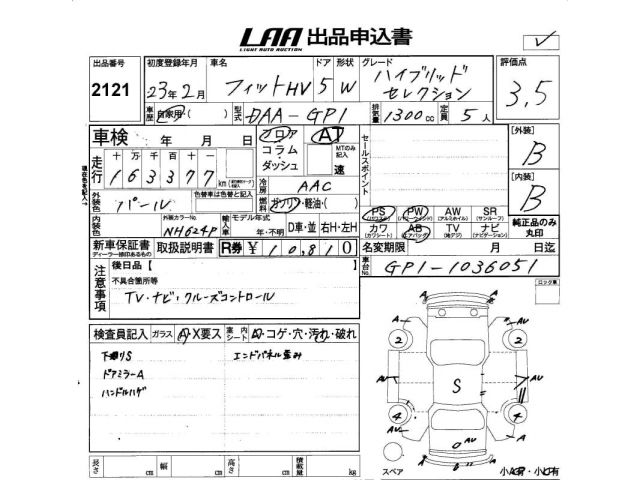 LAA 出品申込書
LIGHT AUTO AUCTION
出品番号 初度登録年月 車名 ドア 形状 グレード 評価点
2121 23年2月 フィットHV 5 W ハイブリッド セレクション 3.5
車歴 自家用・( ) 型式 DAA-GP1 排気量 1300cc 定員 5人
車検 年 月 日 フロア AT セールスポイント [外装]
コラム MTのみ記入 B
ダッシュ 速
走行 十万千百十
163377 km
現在色を記入
冷房 AAC [内装]
外装色 パール 色替車は色替と記入 燃料 ガソリン・軽油・( ) B
PS AW SR
(パワステ) PW (パワーウインド) (アルミホイル) (サンルーフ)
内装色 外装カラーNo. NH624P 輸入車 モデル年式 年・不明 D車・並 右H・左H
カワ (カワシート) AB (エアバッグ) TV (地デジ) ナビ (ナビゲーション) 純正品のみ丸印
新車保証書 ディーラー捺印あるもの 取扱説明書 R券 ¥10,810 名変期限 月 日迄
注意事項 後日品【 車台No. GP1-1036051 ロック車
不具合箇所等
TV・ナビ・クルーズコントロール
検査員記入 ガラス A・X要ス 室内シート A・コゲ・穴・汚れ・破れ
下廻りS エンドパネル歪み
ドアミラーA
ハンドルハゲ
A A
2 AU 2
AU S AU
4 4
AU
A A
AU
長さ cm 幅 cm 高さ cm 積載量 kg スペア